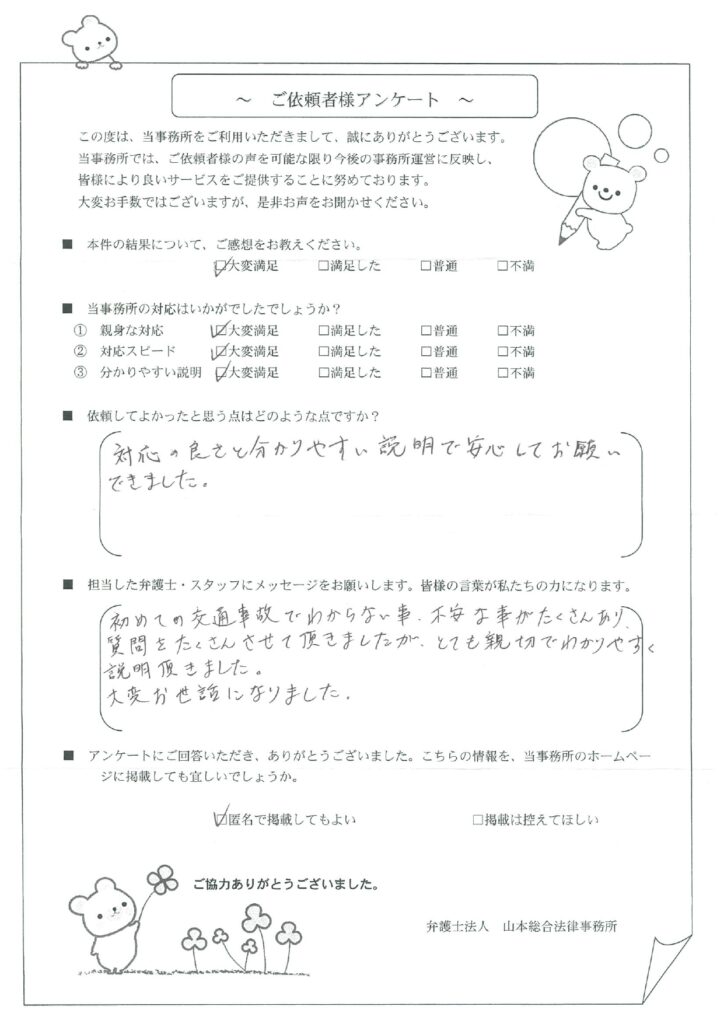 ～ ご依頼者様アンケート ～
この度は、当事務所をご利用いただきまして、誠にありがとうございます。
当事務所では、ご依頼者様の声を可能な限り今後の事務所運営に反映し、
皆様により良いサービスをご提供することに努めております。
大変お手数ではございますが、是非お声をお聞かせください。
■ 本件の結果について、ご感想をお教えください。
☑大変満足 □満足した □普通 □不満
■ 当事務所の対応はいかがでしたでしょうか？
① 親身な対応 ☑大変満足 □満足した □普通 □不満
② 対応スピード ☑大変満足 □満足した □普通 □不満
③ 分かりやすい説明 ☑大変満足 □満足した □普通 □不満
■ 依頼してよかったと思う点はどのような点ですか？
対応の良さと分かりやすい説明で安心してお願い
できました。
■ 担当した弁護士・スタッフにメッセージをお願いします。皆様の言葉が私たちの力になります。
初めての交通事故でわからない事、不安な事がたくさんあり、
質問をたくさんさせて頂きましたが、とても親切でわかりやすく
説明頂きました。
大変お世話になりました。
■ アンケートにご回答いただき、ありがとうございました。こちらの情報を、当事務所のホームペー
ジに掲載しても宜しいでしょうか。
☑匿名で掲載してもよい □掲載は控えてほしい
ご協力ありがとうございました。
弁護士法人 山本総合法律事務所